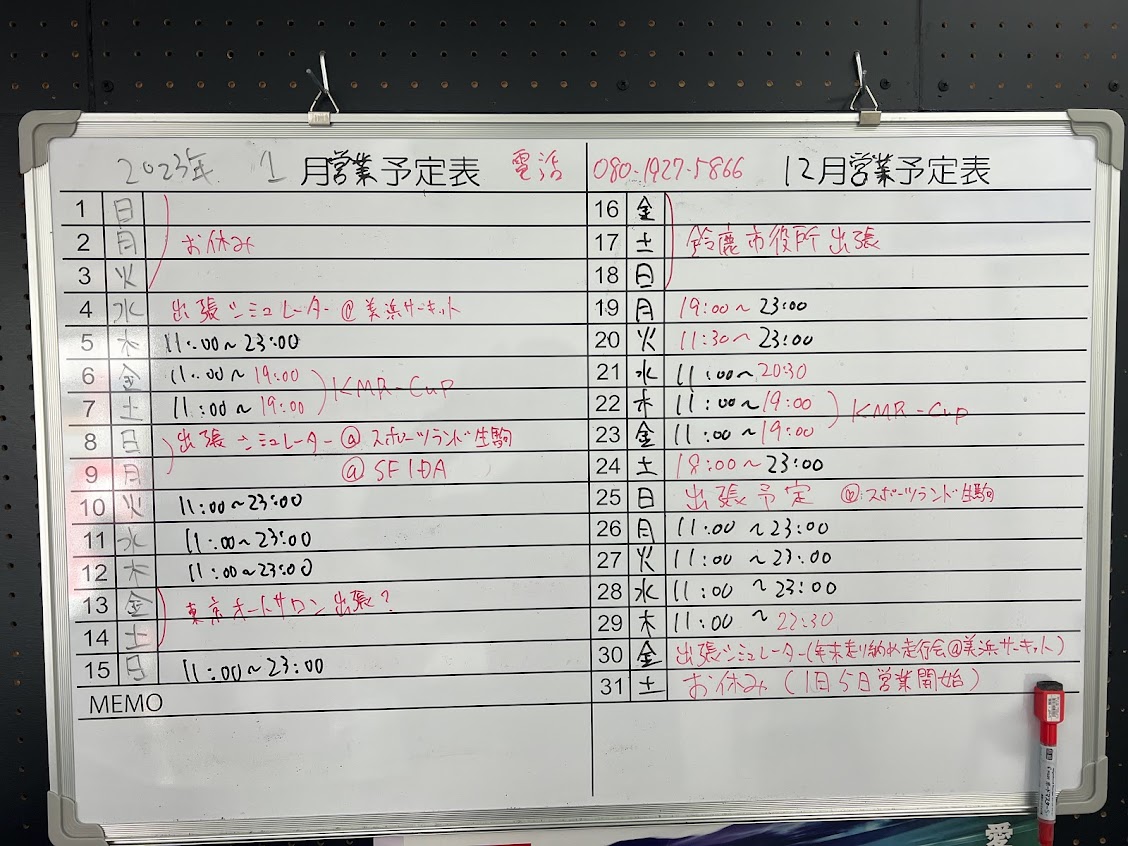 2023年 1月営業予定表 電話
1 日
2 月 お休み
3 火
4 水 出張シミュレーター@美浜サーキット
5 木 11:00~23:00
6 金 11:00~19:00
7 土 11:00~19:00 KMR-Cup
8 日 出張シミュレーター@スポーツランド生駒
9 月 @SEIDA
10 火 11:00~23:00
11 水 11:00~23:00
12 木 11:00~23:00
13 金 東京オートサロン出張?
14 土
15 日 11:00~23:00
MEMO
080-1927-5866 12月営業予定表
16 金
17 土 鈴鹿市役所出張
18 日
19 月 19:00~23:00
20 火 11:30~23:00
21 水 11:00~20:30
22 木 11:00~19:00 KMR-Cup
23 金 11:00~19:00
24 土 18:00~23:00
25 日 出張予定 @スポーツランド生駒
26 月 11:00~23:00
27 火 11:00~23:00
28 水 11:00~23:00
29 木 11:00~22:30
30 金 出張シミュレーター(年末走り納め走行会@美浜サーキット)
31 土 お休み(1月5日営業開始)
愛